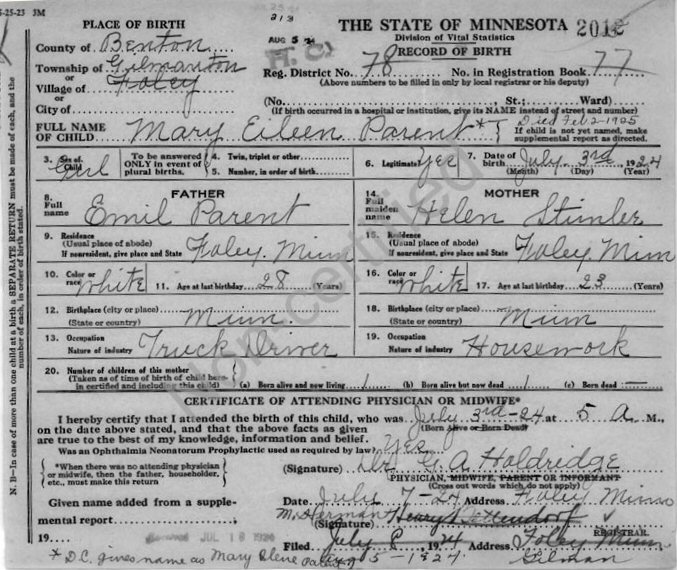 5-25-23 3M
213
PLACE OF BIRTH
THE STATE OF MINNESOTA 2012
AUG 5 24
Division of Vital Statistics
H.C.
County of Benton
RECORD OF BIRTH
Township of Gilmanton
or
Reg. District No. 78 No. in Registration Book 77
Village of Foley
(Above numbers to be filled in only by local registrar or his deputy)
or
City of
(No. St.; Ward)
(If birth occurred in a hospital or institution, give its NAME instead of street and number)
Died Feb 2-1925
FULL NAME OF CHILD Mary Eileen Parent *
If child is not yet named, make supplemental report as directed.
3. Sex of Child Girl
To be answered ONLY in event of plural births.
4. Twin, triplet or other
5. Number, in order of birth
6. Legitimate? Yes
7. Date of birth July 3rd 1924
(Month) (Day) (Year)
FATHER
8. Full name Emil Parent
9. Residence (Usual place of abode) If nonresident, give place and State Foley. Minn
10. Color or race White 11. Age at last birthday 28 (Years)
12. Birthplace (city or place) (State or country) Minn.
13. Occupation Nature of industry Truck Driver
MOTHER
14. Full maiden name Helen Stimler
15. Residence (Usual place of abode) If nonresident, give place and State Foley. Minn
16. Color or race White 17. Age at last birthday 23 (Years)
18. Birthplace (city or place) (State or country) Minn
19. Occupation Nature of industry Housework
20. Number of children of this mother
(Taken as of time of birth of child herein certified and including this child) (a) Born alive and now living 1 (b) Born alive but now dead 1 (c) Born dead —
CERTIFICATE OF ATTENDING PHYSICIAN OR MIDWIFE*
I hereby certify that I attended the birth of this child, who was July 3rd-24 at 5 A. M.,
(Born Alive or Born Dead)
on the date above stated, and that the above facts as given
are true to the best of my knowledge, information and belief.
Was an Ophthalmia Neonatorum Prophylactic used as required by law? Yes
*When there was no attending physician or midwife, then the father, householder, etc., must make this return
(Signature) Dr. G. A Holdredge
PHYSICIAN, MIDWIFE, PARENT OR INFORMANT
(Cross out words which do not apply)
Date July 7-24 Address Foley Minn
Given name added from a supplemental report
(Signature)
REGISTRAR.
19
JUL 18
Filed July 8 1924 Address Foley Minn
Aug 5-1924 Gilman
* D.C. gives name as Mary Elene Parent
N. B—In case of more than one child at a birth a SEPARATE RETURN must be made of each, and the number of each, in order of birth stated.
Non-certified